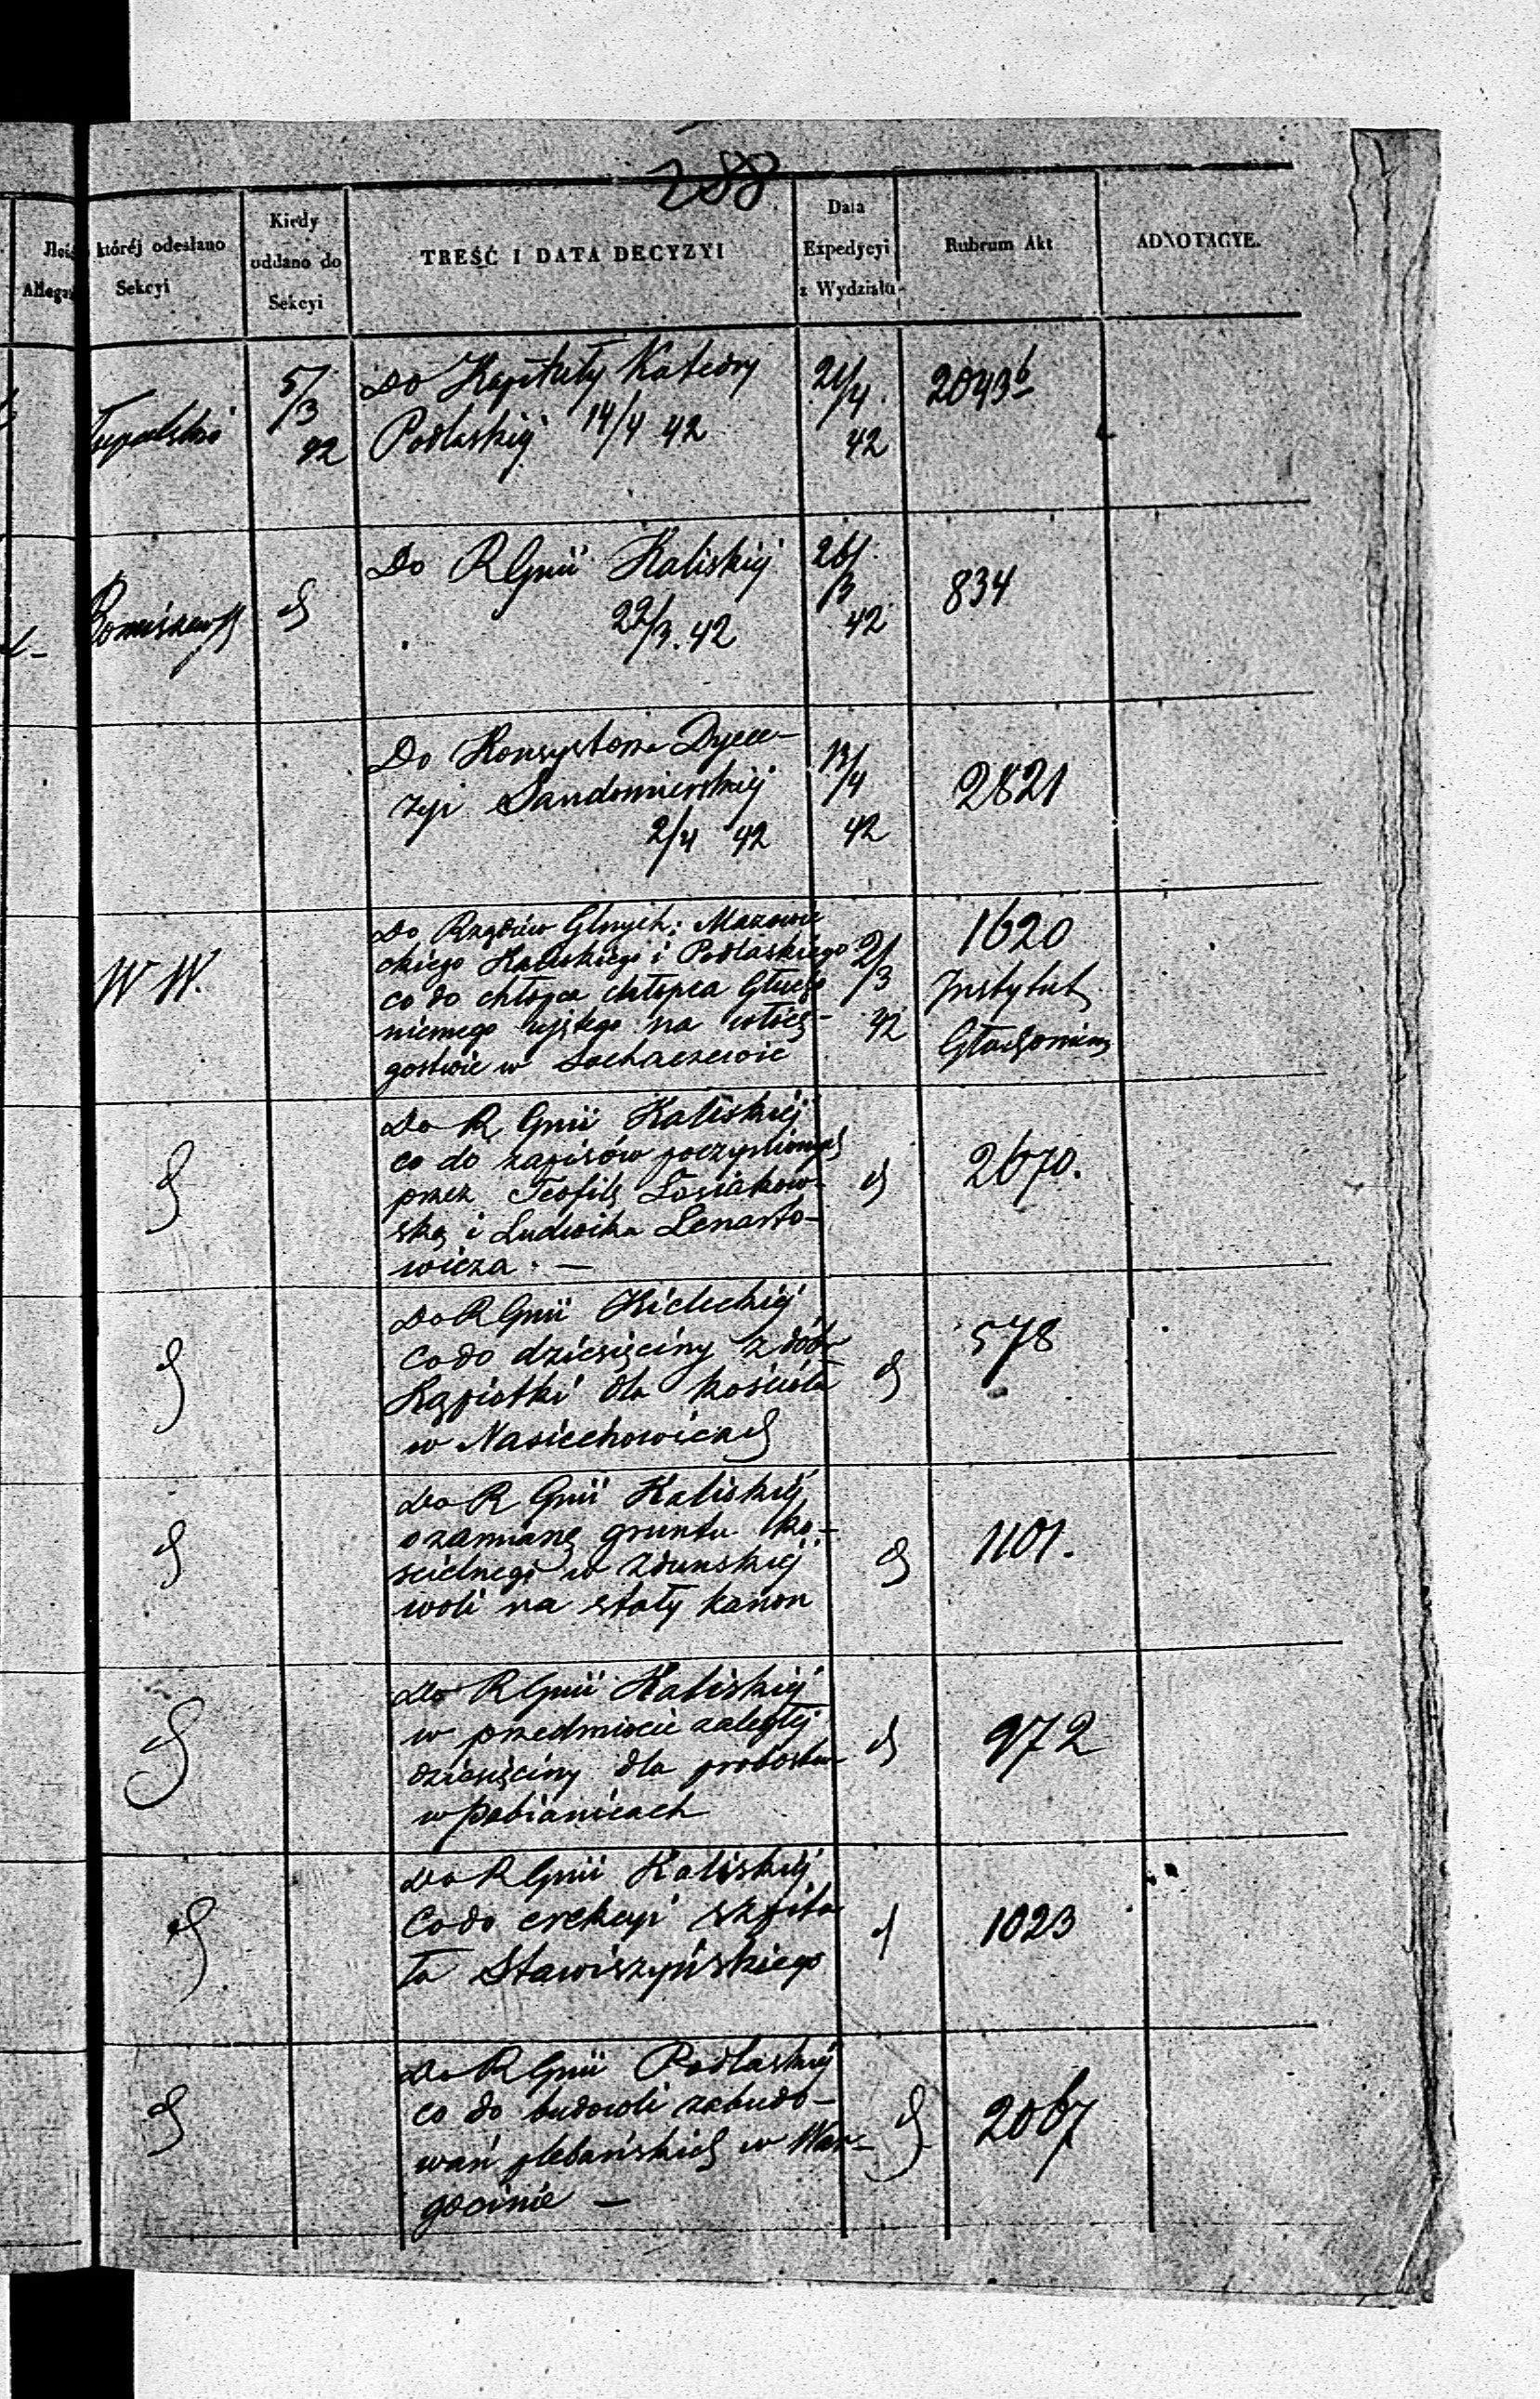 288
Ilość
Allega
której odesłano
Sekcyi
Kiedy
oddano do
Sekcyi
TREŚĆ I DATA DECYZYI
Data
Expedycyi
z Wydziału
Rubrum Akt
ADNOTACYE.
5/3 42
Do Kapituły Katedry
Podlaskiej 14/4 42
21/4 42
2043b
Do R Gnii Kaliskiej
22/3. 42
26/3 42
834
Do Konsystorza Dyece-
zyi Sandomierskiej
2/4 42
13/4 42
2821
W W.
Do Rządów Glnych: Mazowie
ckiego Kaliskiego i Podlaskiego
co do chłopca chłopca Głucho
niemego ujętego na włóczę-
gostwie w Sochaczewie
21/3 42
1620
Instytut
Głuchoniem
Do R Gnii Kaliskiej
co do zapisów poczynionych
przez Teofilę Łosiakow-
ską i Ludwika Lenarto-
wicza. —
2670.
Do R Gnii Kieleckiej
co do dziesięciny z dóbr
Kąpiołki dla kościoła
w Nasiechowicach
578
Do R Gnii Kaliskiej
o zamianę gruntu ko-
scielnego w Zdunskiej
woli na stały kanon
1101.
Do R Gnii Kaliskiej
w przedmiocie zaległej
dziesięciny dla probostw
w Pabianicach
972
Do R Gnii Kaliskiej
Co do erekcyi szpita
la Stawiszyńskiego
1023
Do R Gnii Podlaskiej
co do budowli zabudo-
wań plebańskich w War-
gocinie —
2067